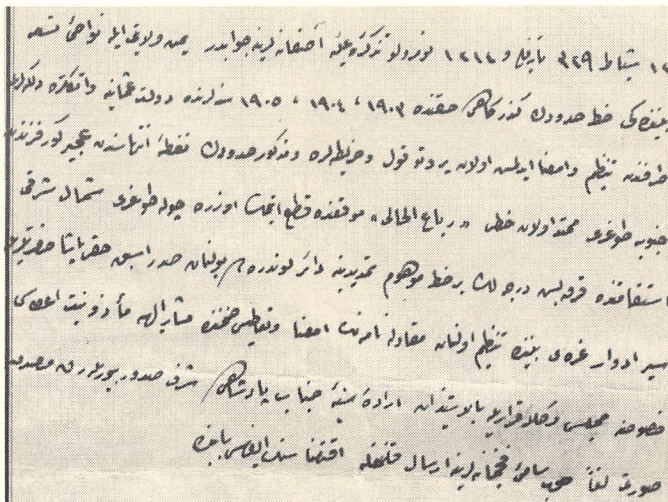 ١٢ شباط ٣٢٩ تاريخلى و ١٢١٤ نومرولو تذكرۀ عليۀ آصفانه لرينه جوابدر يمن ولايتى ايله نواحئ تسعه
بيننده كى خط حدودك كذركاهى حقنده ١٩٠٣ ، ١٩٠٤ ، ١٩٠٥ سنه لرنده دولت عثمانيه وانكلتره دولتلرى
طرفندن تنظيم وامضا ايدلمش اولان پروتوقول وخريطه لره ومذكور حدودك نقطۀ انتهاسندن
جنوبه طوغرى ممتد اولان خطى «رباع الخالى» موقعنده قطع ايتمك اوزره چوله طوغرى شمال شرقى
استقامتنده قرق بش درجه لك بر خط موهوم تمديدينه دائر لوندره ده بولنان صدر اسبق حقى پاشا حضرتلريله
سير ادوارد غرەى بيننده تنظيم اولنان مقاوله نامه نك امضا وتعاطيسى ضمننده مشار اليهه مأذونيت اعطاسى
خصوصنه مجلس وكلا قراريله بالاستيذان ارادۀ سنيۀ جناب پادشاهى شرف صدور بيوريلەرق مصدق
صورتى لفاً سامئ فخيمانه لرينه ارسال قلنمغله اقتضاسنك ايفاسى بابنده